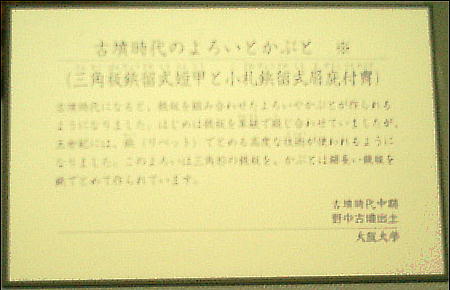 古墳時代のよろいとかぶと ※
(三角板鋲留式短甲と小札鋲留式眉庇付冑)
古墳時代になると、鉄板を組み合わせたよろいやかぶとが作られる
ようになりました。はじめは鉄板を革紐で綴じ合わせていましたが、
五世紀には、鋲(リベット)でとめる高度な技術が使われるように
なりました。このよろいは三角形の鉄板を、かぶとは細長い鉄板を
鋲でとめて作られています。
古墳時代中期
野中古墳出土
大阪大学